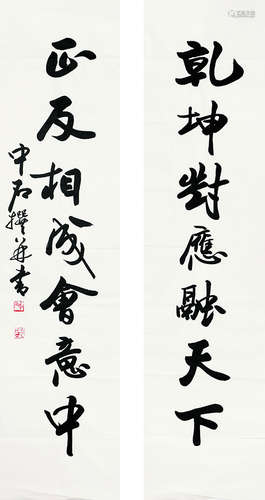 乾坤對應融天下
正反相成會意中
中石撰并書